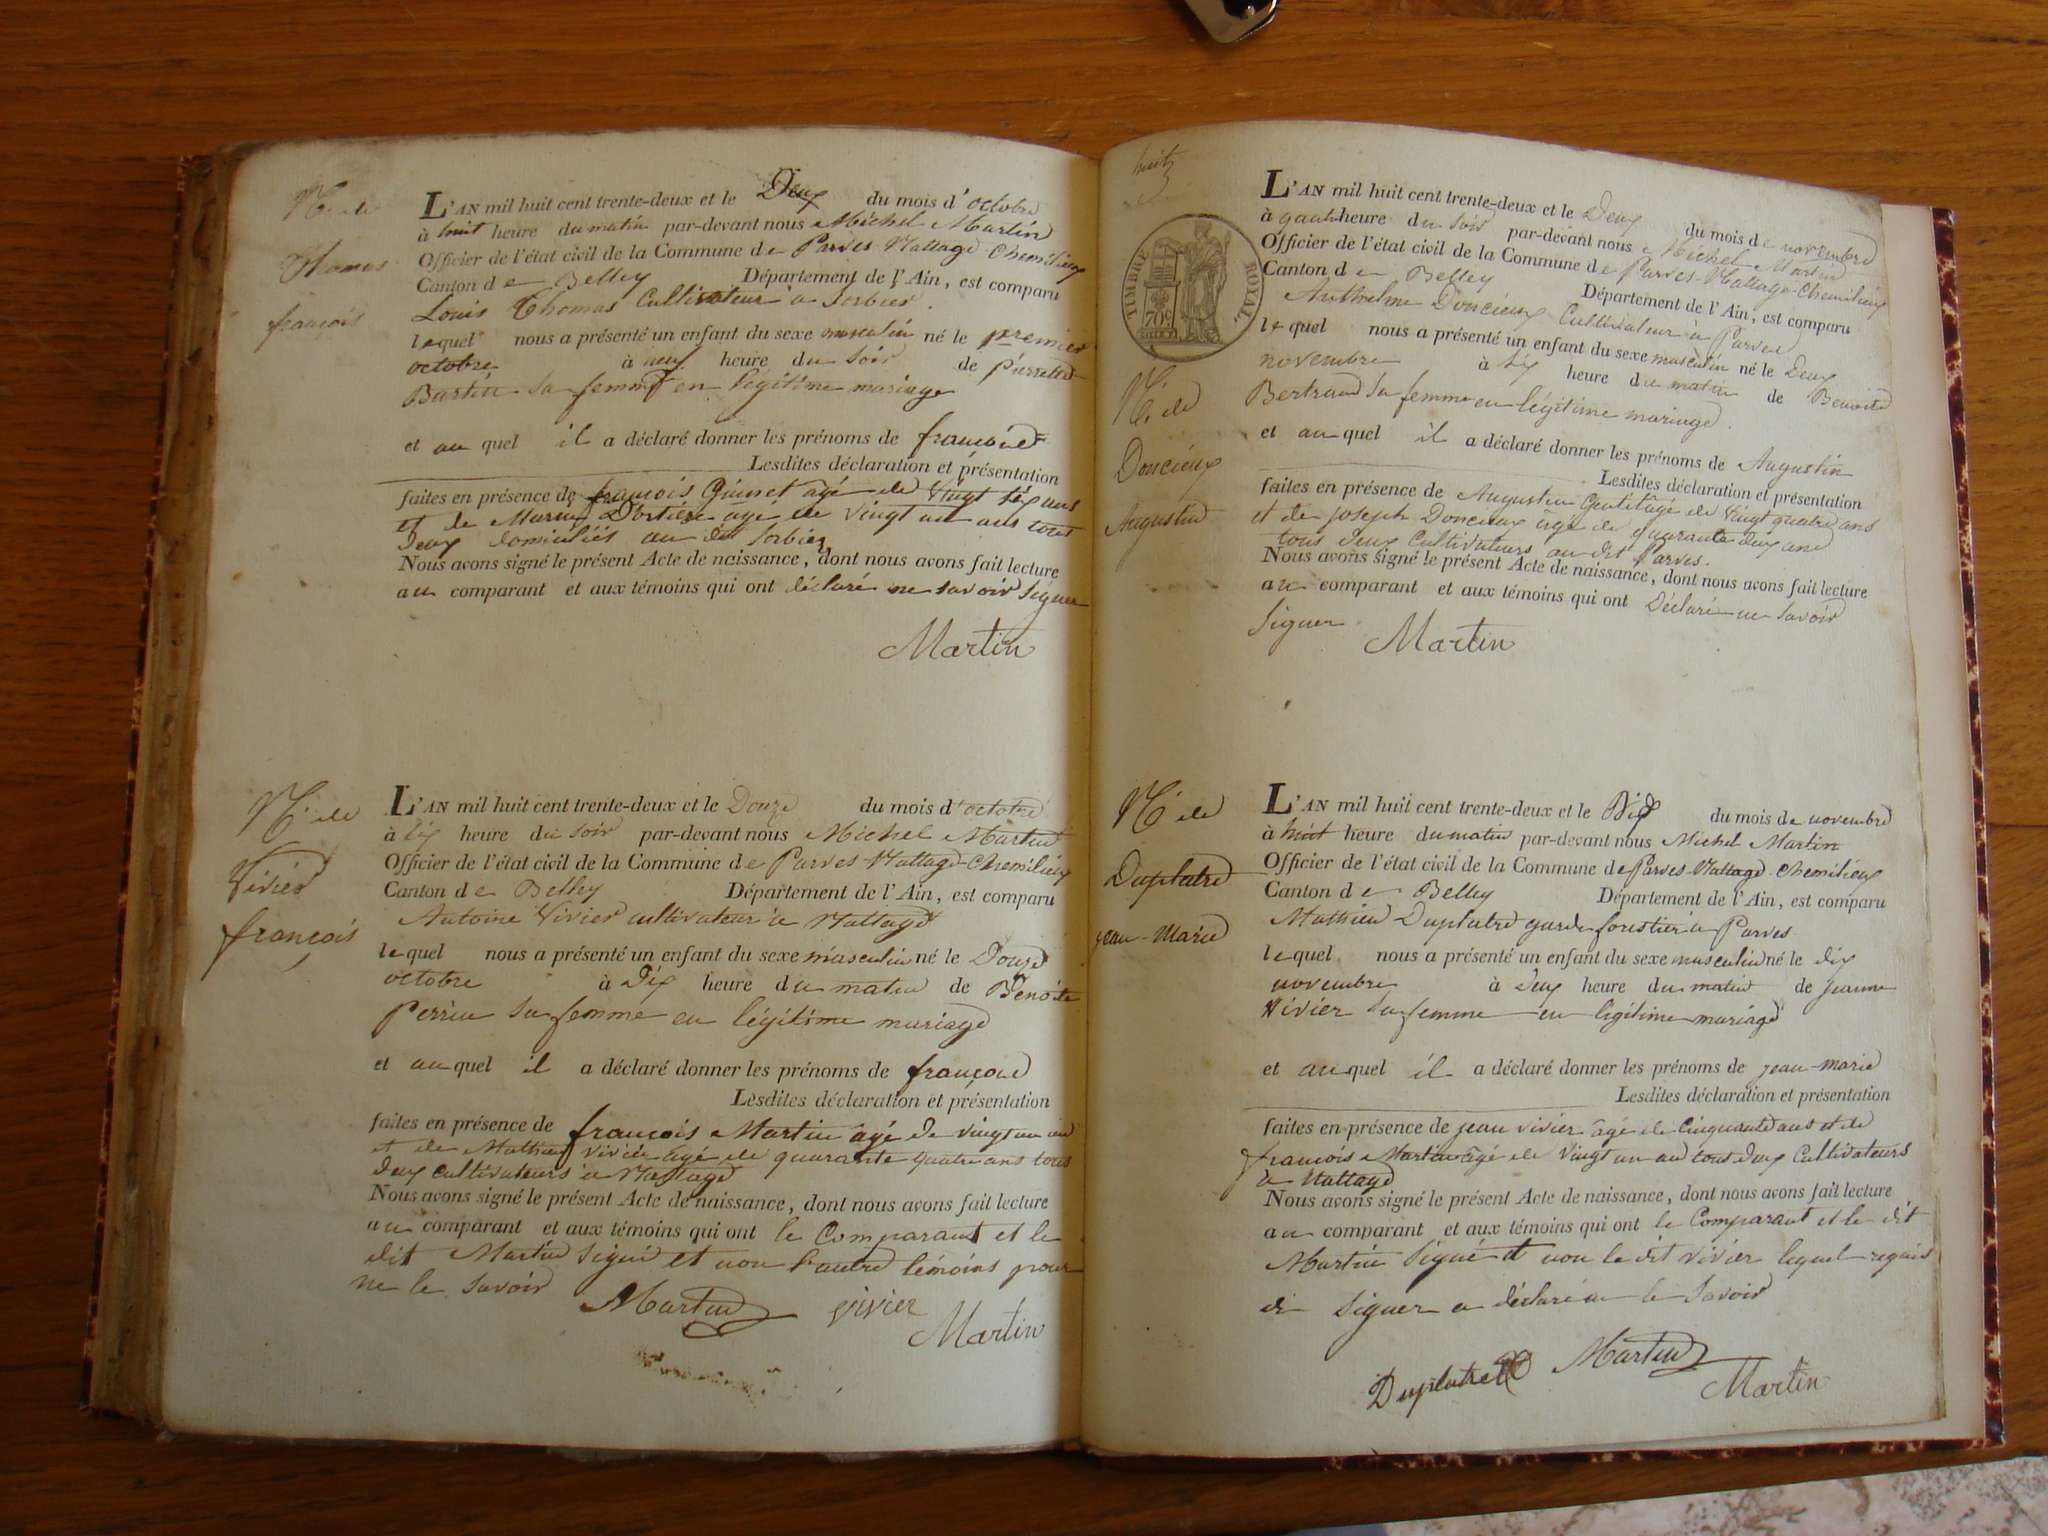 N. de
Thomas
françois
L'AN mil huit cent trente-deux et le Deux du mois d'octobre
à huit heure du matin par-devant nous Michel Martin
Officier de l'état civil de la Commune de Parves-Nattage-Chemilieu
Canton de Belley Département de l'Ain, est comparu
Louis Thomas Cultivateur à Sorbier
lequel nous a présenté un enfant du sexe masculin né le premier
octobre à neuf heure du soir de pierrette
Burtin sa femme en légitime mariage
et au quel il a déclaré donner les prénoms de françois
Lesdites déclaration et présentation
faites en présence de françois agé de Vingt six ans
et de agé de vingt un ans tous
Deux domiciliés au dit Sorbier
Nous avons signé le présent Acte de naissance, dont nous avons fait lecture
au comparant et aux témoins qui ont déclaré ne savoir signer
Martin
N. de
Vivier
françois
L'AN mil huit cent trente-deux et le Douze du mois d'octobre
à six heure du soir par-devant nous Michel Martin
Officier de l'état civil de la Commune de Parves-Nattage-Chemilieu
Canton de Belley Département de l'Ain, est comparu
Antoine Vivier cultivateur à Nattage
lequel nous a présenté un enfant du sexe masculin né le Douze
octobre à Dix heure du matin de Benoite
Perrin sa femme en légitime mariage
et au quel il a déclaré donner les prénoms de françois
Lesdites déclaration et présentation
faites en présence de françois Martin agé de vingt un an
et de Mathieu Vivier agé de quarante quatre ans tous
Deux cultivateurs à Nattage
Nous avons signé le présent Acte de naissance, dont nous avons fait lecture
au comparant et aux témoins qui ont le Comparant et le
dit Martin signé et non l'autre témoins pour
ne le savoir
Martin vivier
Martin
huit
TIMBRE ROYAL
70c
N. de
Doncieux
Augustin
L'AN mil huit cent trente-deux et le Deux du mois de novembre
à quatre heure du soir par-devant nous Michel Martin
Officier de l'état civil de la Commune de Parves-Nattage-Chemilieu
Canton de Belley Département de l'Ain, est comparu
Anthelme Doncieux Cultivateur à Parves
lequel nous a présenté un enfant du sexe masculin né le Deux
novembre à six heure du matin de Benoite
Bertrand sa femme en légitime mariage.
et au quel il a déclaré donner les prénoms de Augustin
Lesdites déclaration et présentation
faites en présence de Augustin Gentil âgé de Vingt quatre ans
et de joseph Doncieux âgé de quarante deux ans
tous deux Cultivateurs au dit Parves.
Nous avons signé le présent Acte de naissance, dont nous avons fait lecture
au comparant et aux témoins qui ont Déclaré ne savoir
signer
Martin
N. de
Duplatre
jean-Marie
L'AN mil huit cent trente-deux et le Dix du mois de novembre
à huit heure du matin par-devant nous Michel Martin
Officier de l'état civil de la Commune de Parves-Nattage-Chemilieu
Canton de Belley Département de l'Ain, est comparu
Mathieu Duplatre garde forestier à Parves
lequel nous a présenté un enfant du sexe masculin né le dix
novembre à Deux heure du matin de jeanne
Vivier sa femme en légitime mariage
et au quel il a déclaré donner les prénoms de jean-marie
Lesdites déclaration et présentation
faites en présence de jean vivier âgé de Cinquante ans et de
françois Martin âgé de Vingt un an tous deux Cultivateurs
à Nattage
Nous avons signé le présent Acte de naissance, dont nous avons fait lecture
au comparant et aux témoins qui ont le Comparant et le dit
Martin signé et non le dit Vivier lequel requis
de signer a déclaré ne le savoir
Duplatre Martin
Martin